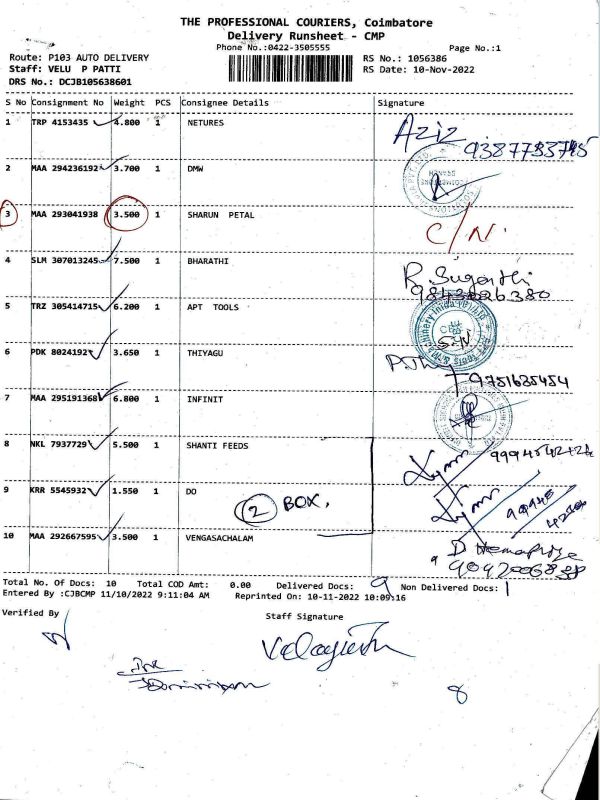 THE PROFESSIONAL COURIERS, Coimbatore
Delivery Runsheet - CMP
Phone No.:0422-3505555 Page No.:1
Route: P103 AUTO DELIVERY RS No.: 1056386
Staff: VELU P PATTI RS Date: 10-Nov-2022
DRS No.: DCJB105638601
S No Consignment No Weight PCS Consignee Details Signature
1 TRP 4153435 4.800 1 NETURES Aziz
9387733745
2 MAA 294236192 3.700 1 DMW
3 MAA 293041938 3.500 1 SHARUN PETAL C/N.
4 SLM 307013245 7.500 1 BHARATHI R. Suganthi
9843026380
5 TRZ 305414715 6.200 1 APT TOOLS
6 PDK 8024192 3.650 1 THIYAGU
9751635454
7 MAA 295191368 6.800 1 INFINIT
8 NKL 7937729 5.500 1 SHANTI FEEDS
9 KRR 5545932 1.550 1 DO
2 BOX,
10 MAA 292667595 3.500 1 VENGASACHALAM
Total No. Of Docs: 10 Total COD Amt: 0.00 Delivered Docs: 9 Non Delivered Docs: 1
Entered By :CJBCMP 11/10/2022 9:11:04 AM Reprinted On: 10-11-2022 10:09:16
Verified By Staff Signature
8